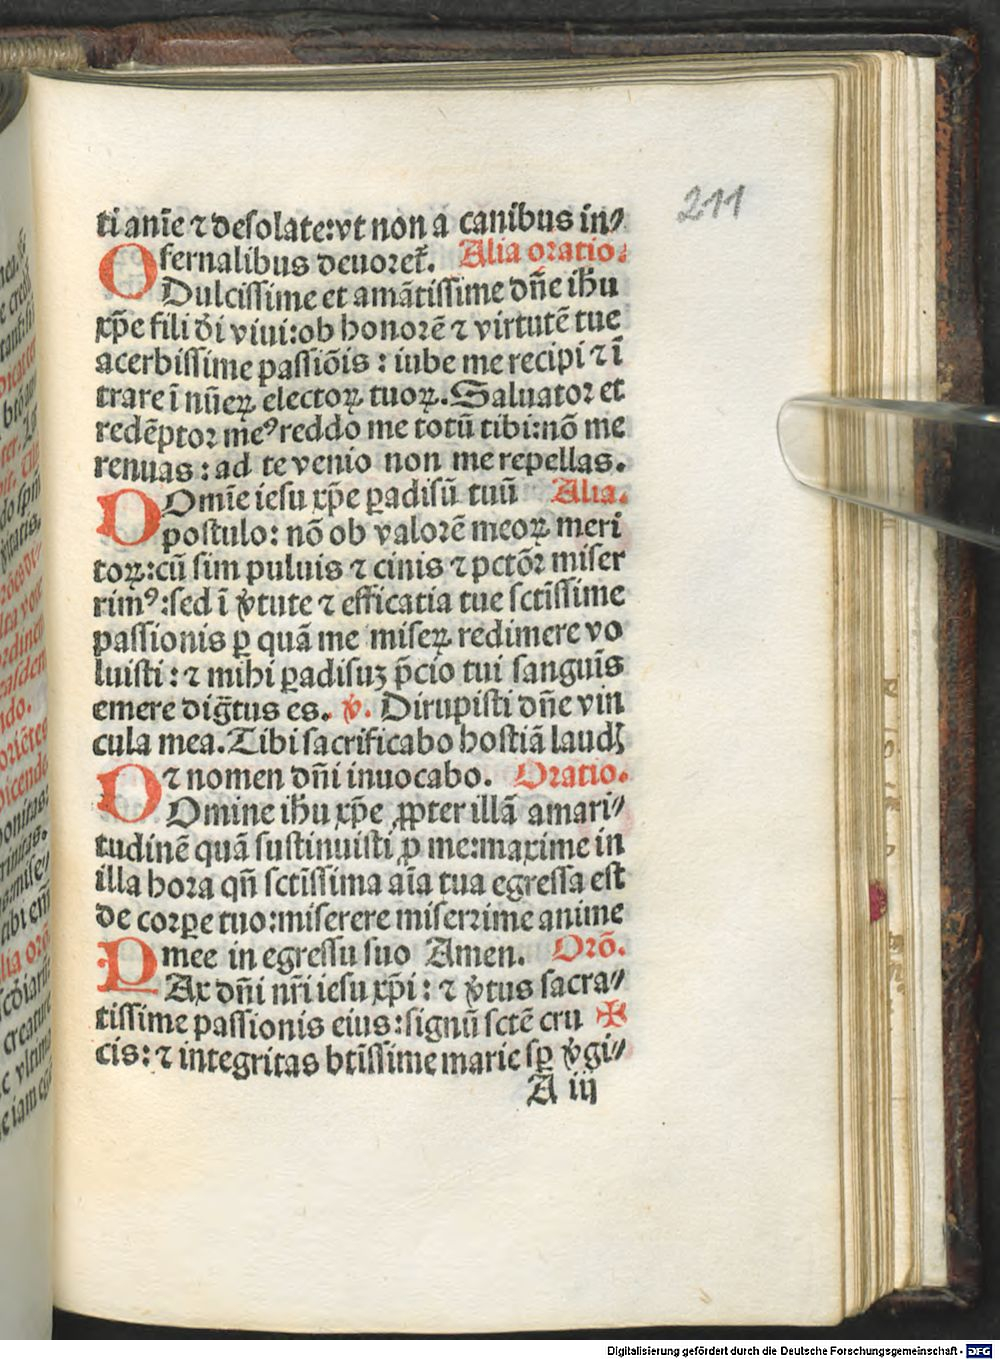 211
ti anīe ⁊ desolate:vt non a canibus in⸗
fernalibus deuoret̄. Alia oratio.
O Dulcissime et amātissime dn̄e ihū
xp̄e fili dī viui:ob honorē ⁊ virtutē tue
acerbissime passiōis : iube me recipi ⁊ ī
trare ī nūeꝝ electoꝝ tuoꝝ. Saluator et
redēptor meꝰ reddo me totū tibi:nō me
renuas : ad te venio non me repellas.
D Omīe iesu xp̄e ꝑadisū tuū Alia.
postulo: nō ob valorē meoꝝ meri
toꝝ:cū sim puluis ⁊ cinis ⁊ pctōꝛ miser
rimꝰ:sed ī v̄tute ⁊ efficatia tue sctīssime
passionis ꝑ quā me miseꝝ redimere vo
luisti : ⁊ mihi ꝑadisuꝫ p̄cio tui sanguīs
emere diḡtus es. ℣. Dirupisti dn̄e vin
cula mea. Tibi sacrificabo hostiā laudꝭ
⁊ nomen dn̄i inuocabo. Oratio.
O Omine ihū xp̄e ꝓpter illā amari⸗
tudinē quā sustinuisti ꝓ me:maxime in
illa hora qn̄ sctīssima aīa tua egressa est
de corꝑe tuo:miserere miserrime anime
mee in egressu suo Amen. Orō.
P Ax dn̄i nr̄i iesu xp̄i : ⁊ v̄tus sacra⸗
tissime passionis eius:signū sctē cru ✠
cis: ⁊ integritas btīssime marie sꝑ v̄gi⸗
A iij
Digitalisierung gefördert durch die Deutsche Forschungsgemeinschaft - DFG